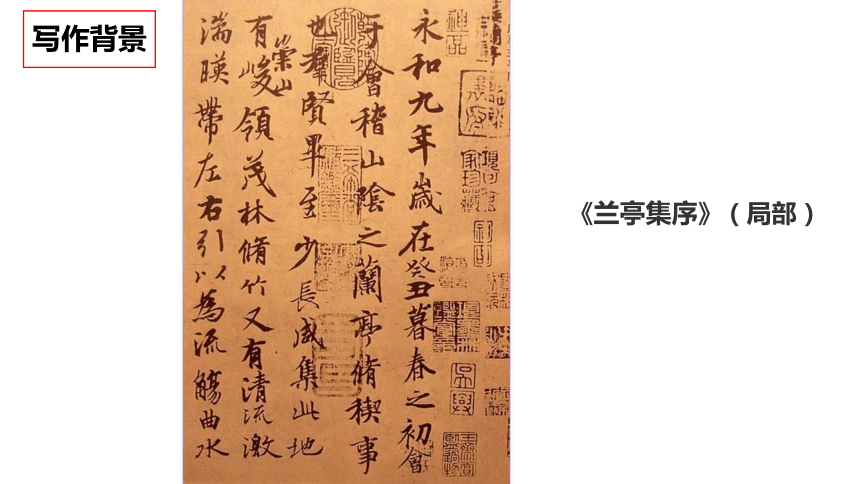 写作背景
永和九年歲在癸丑暮春之初會
于會稽山陰之蘭亭脩稧事
也羣賢畢至少長咸集此地
有崇山峻領茂林脩竹又有清流激
湍暎帶左右引以為流觴曲水
《兰亭集序》（局部）
神品